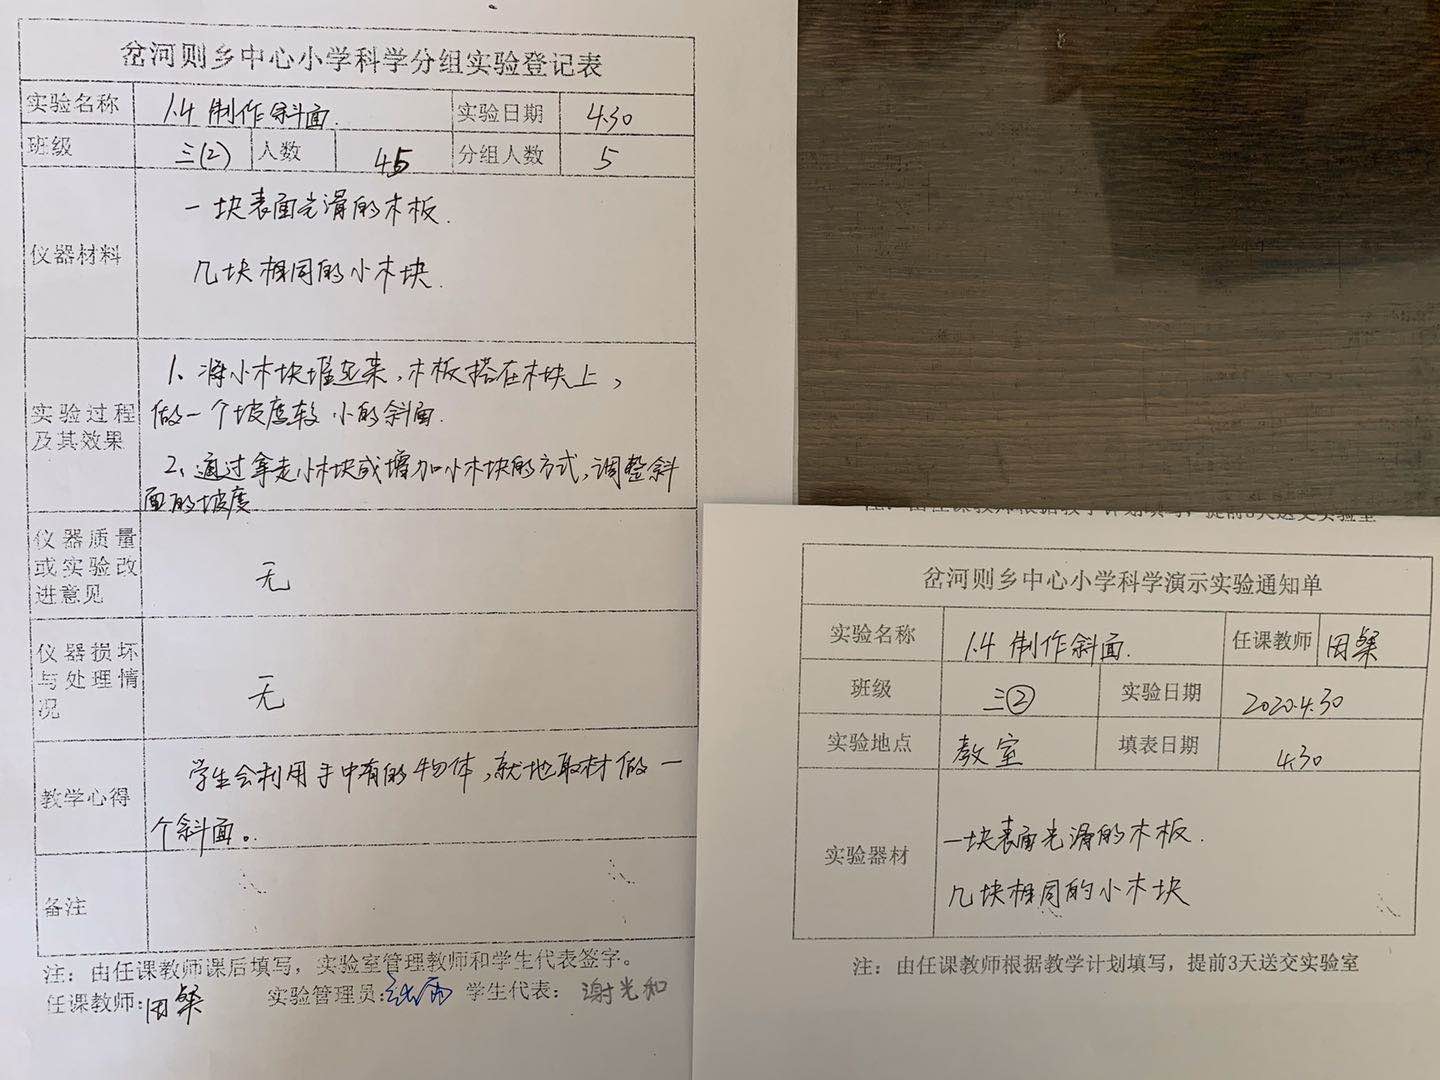 岔河则乡中心小学科学分组实验登记表
实验名称 1.4 制作斜面. 实验日期 4.30
班级 三(2) 人数 45 分组人数 5
仪器材料
一块表面光滑的木板.
几块相同的小木块.
实验过程及其效果
1、将小木块堆起来,木板搭在木块上,
做一个坡度较小的斜面.
2、通过拿走小木块或增加小木块的方式,调整斜
面的坡度
仪器质量或实验改进意见
无
仪器损坏与处理情况
无
教学心得
学生会利用手中有的物体,就地取材做一
个斜面。
备注
注：由任课教师课后填写，实验室管理教师和学生代表签字。
任课教师: 田粲 实验管理员: 学生代表: 谢光和
注：由任课教师根据教学计划填写，提前3天送交实验室
岔河则乡中心小学科学演示实验通知单
实验名称 1.4 制作斜面. 任课教师 田粲
班级 三② 实验日期 2020.4.30
实验地点 教室 填表日期 4.30
实验器材
一块表面光滑的木板.
几块相同的小木块
注：由任课教师根据教学计划填写，提前3天送交实验室